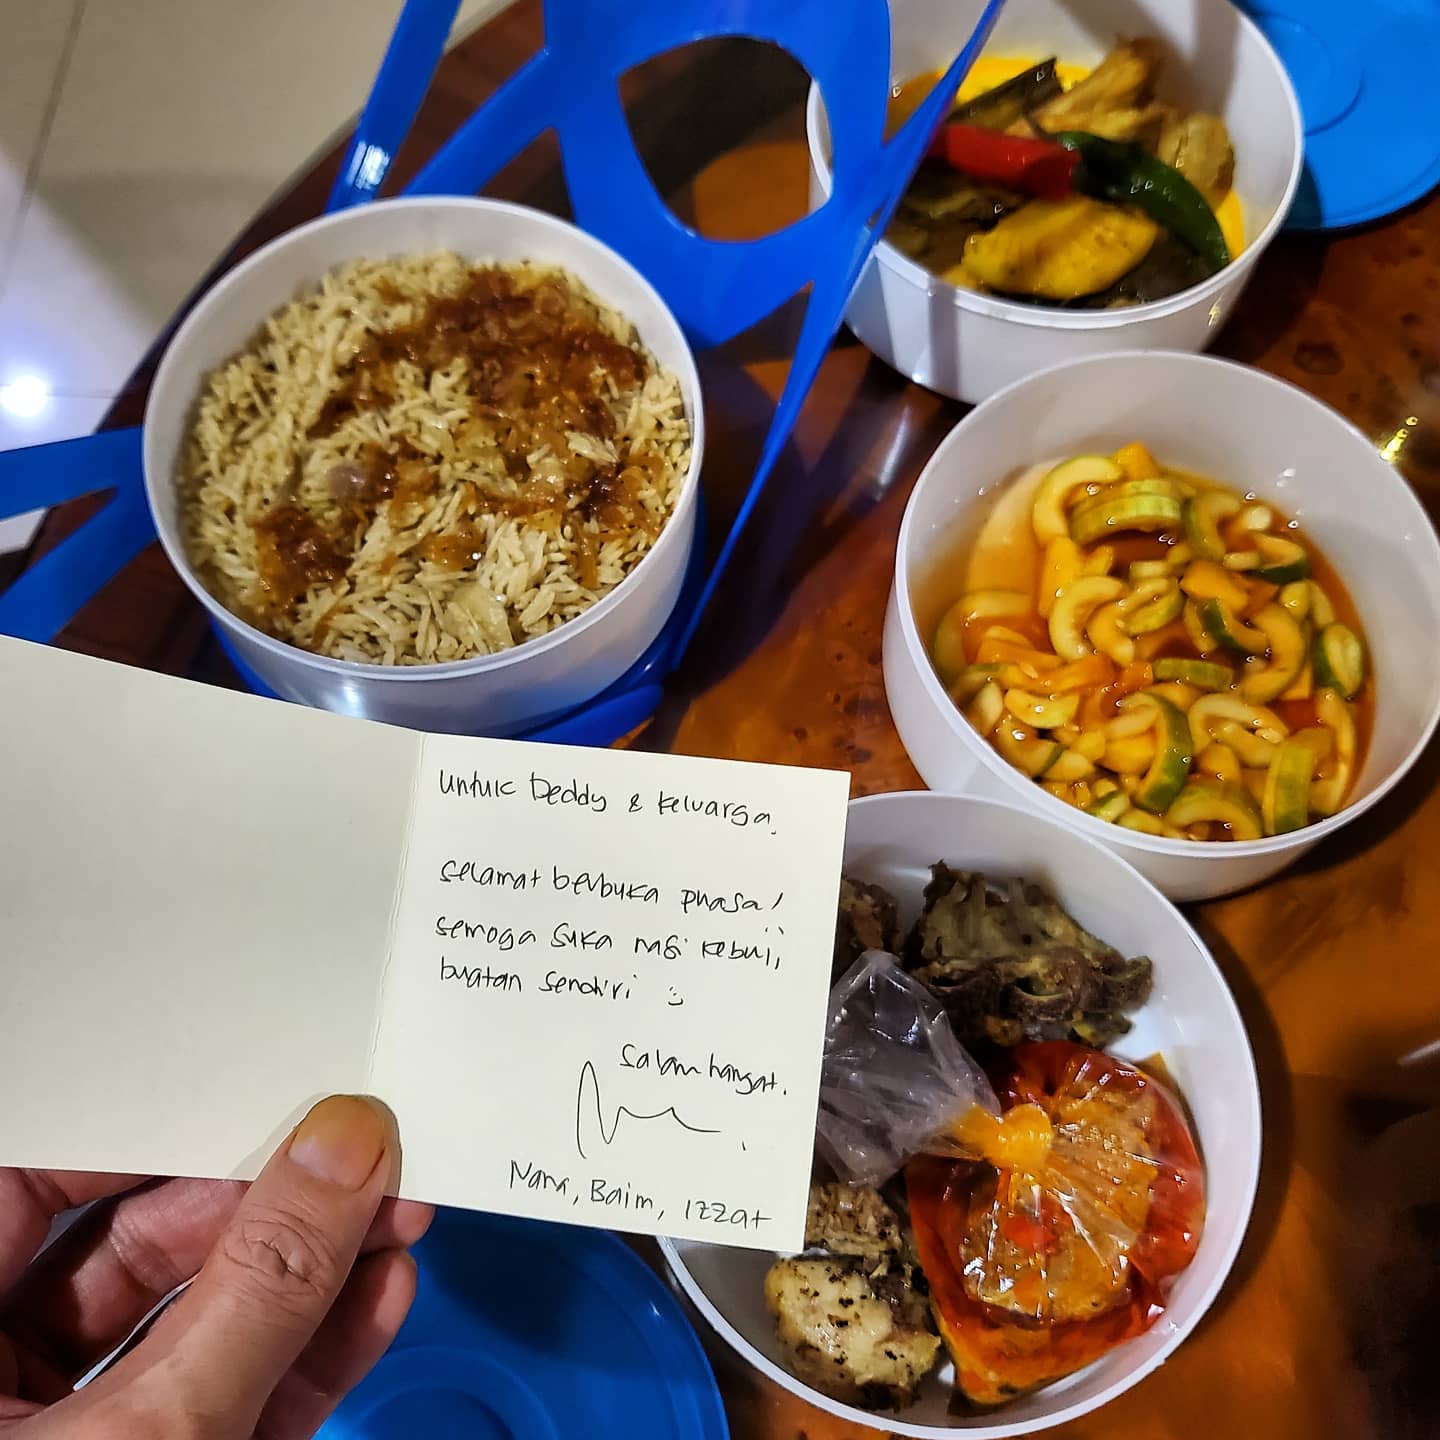 Untuk Deddy & keluarga,
selamat berbuka puasa!
semoga suka nasi kebuli,
buatan sendiri :)
Salam hangat.
Nana, Baim, Izzat